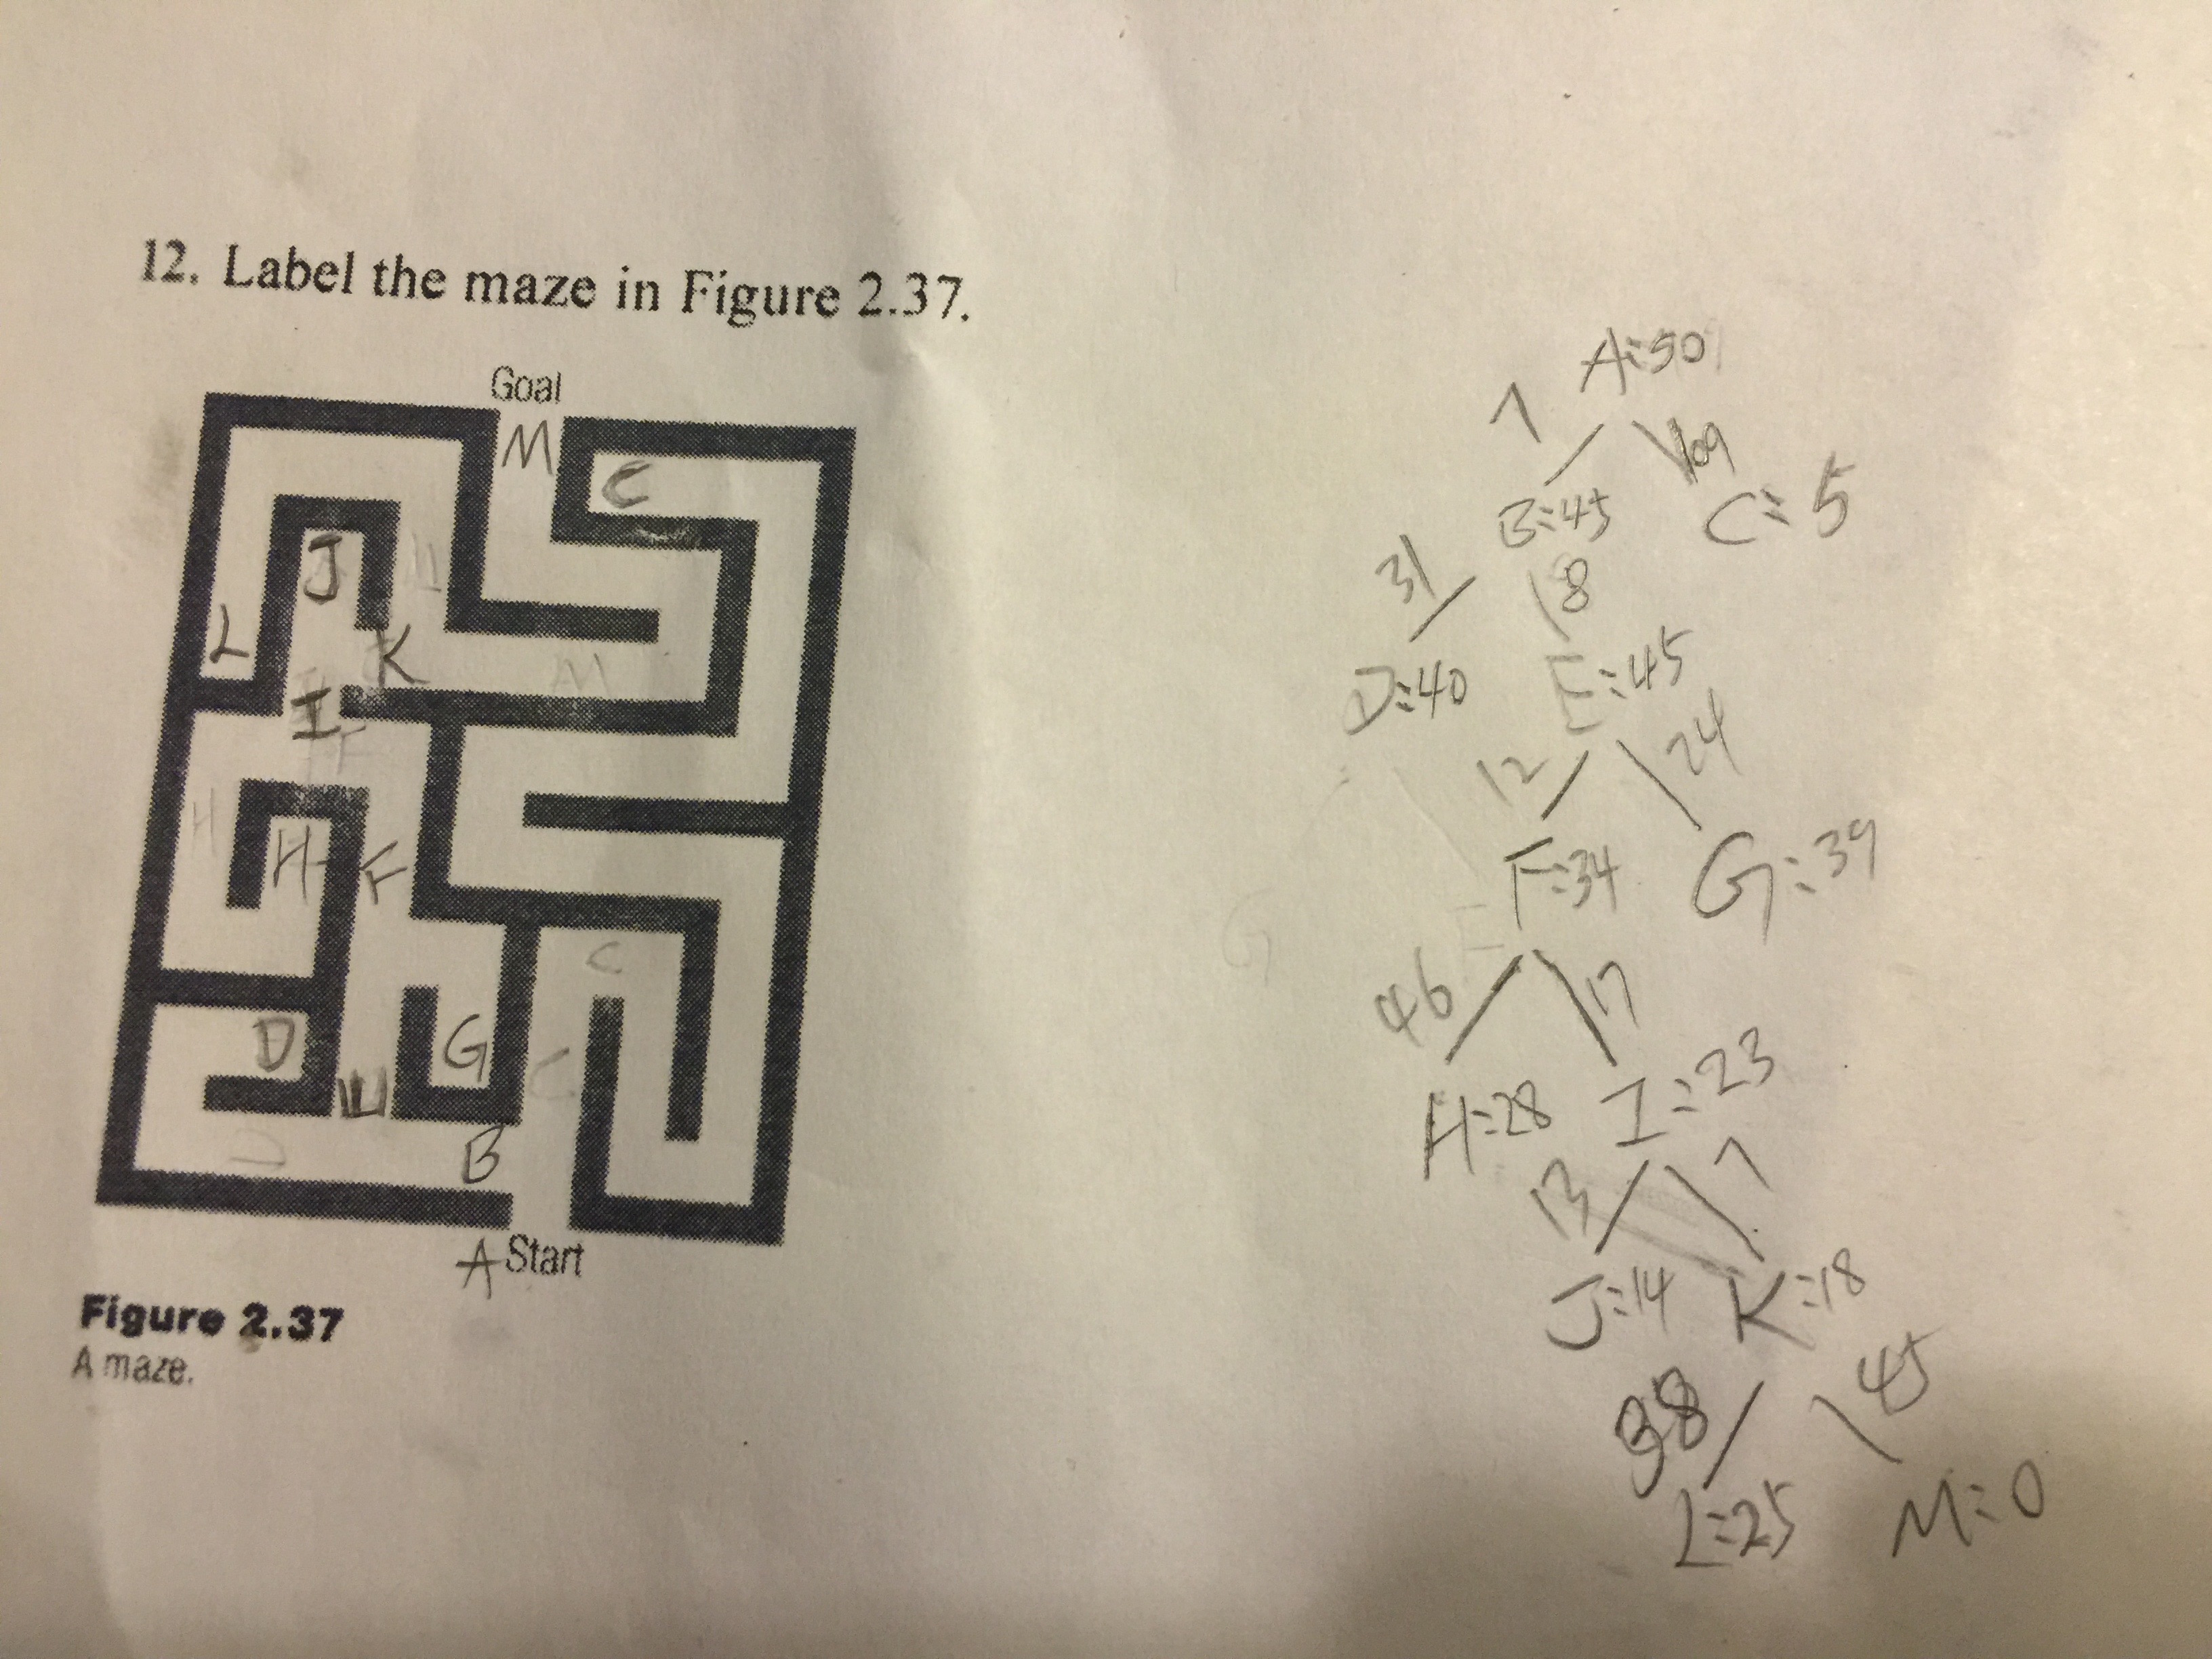 12. Label the maze in Figure 2.37.
Goal
M
C
J
L
K
M
I
F
H
H
F
C
D
G
E
C
D
B
A Start
Figure 2.37
A maze.
A:50
7 109
B:45 C:5
31 8
D:40 E:45
12 24
F:34 G:39
G E
46 17
H:28 I:23
13 7
J:14 K:18
38 45
L:25 M:0